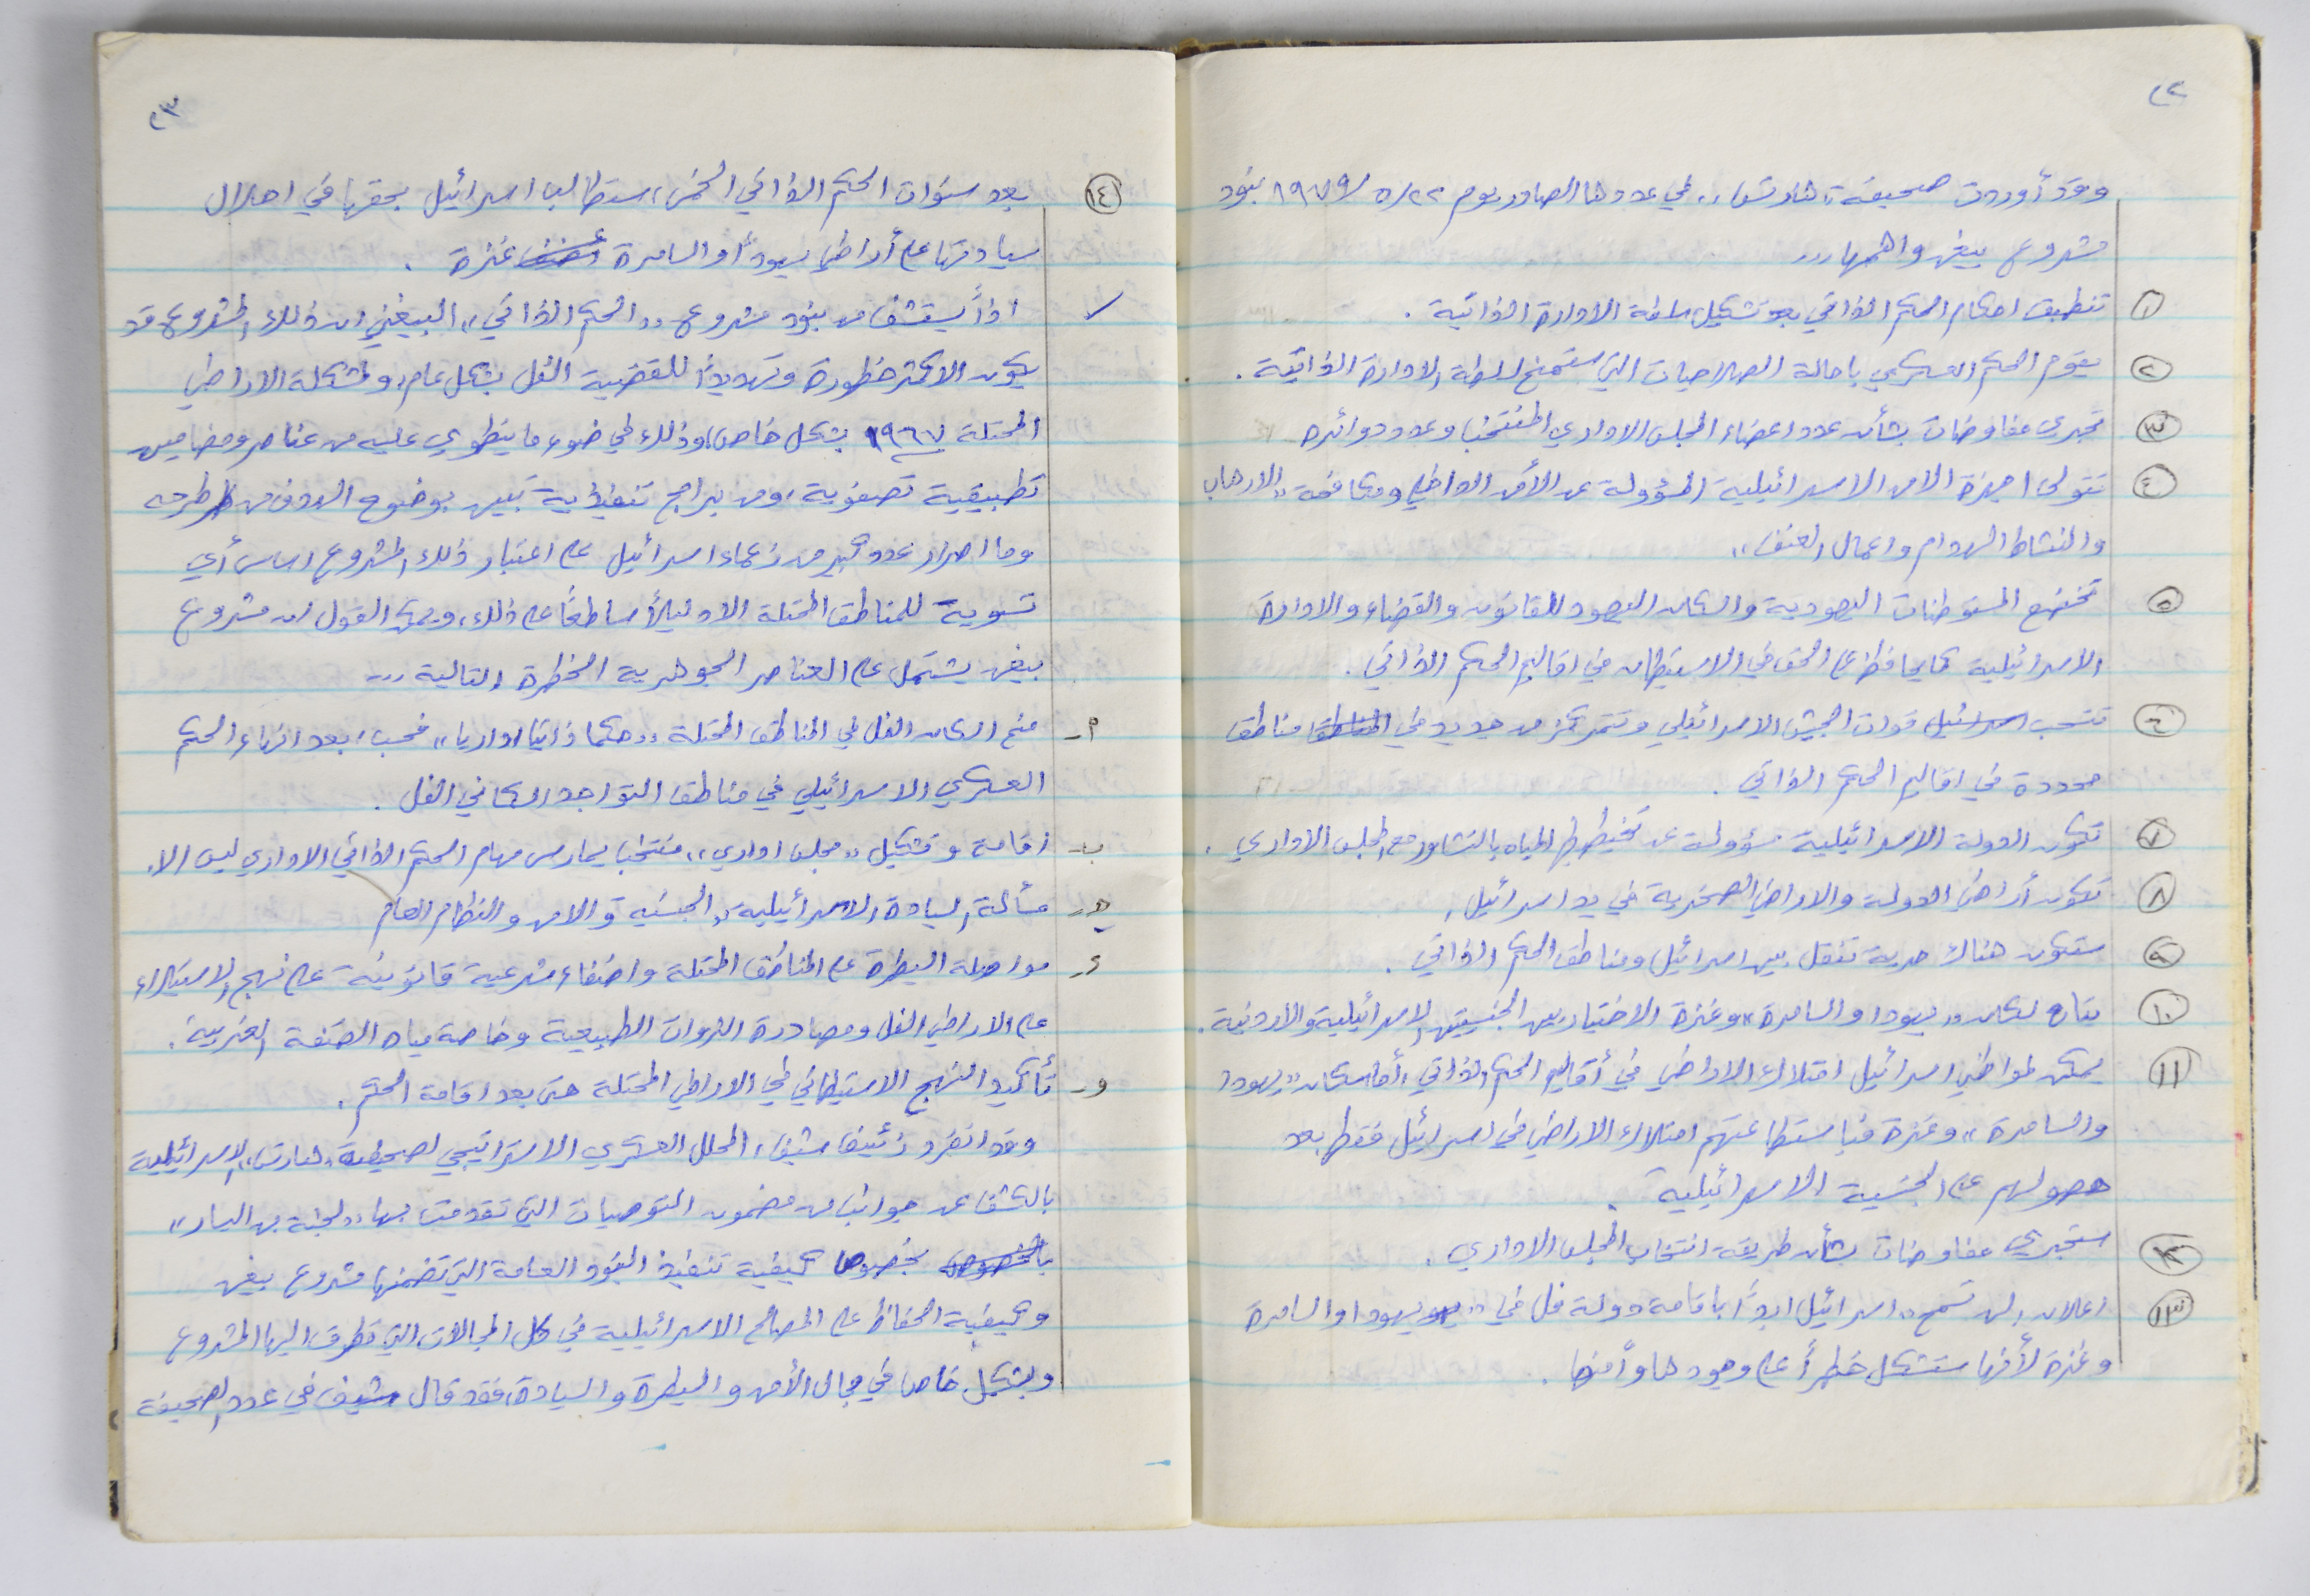 ٢٢
وقد أوردت صحيفة "هآرتس"، في عددها الصادر يوم ٢٢/٥/١٩٧٩ بنود
مشروع بيغن وأهمها...
١ تنطبق احكام الحكم الذاتي بعد تشكيل سلطة الادارة الذاتية.
٢ يقوم الحكم العسكري باحالة الصلاحيات التي ستمنح لسلطة الادارة الذاتية.
٣ تجري مفاوضات بشأن عدد اعضاء المجلس الاداري المنتخب وعدد دوائره
٤ تتولى اجهزة الامن الاسرائيلية المسؤولة عن الأمن الداخلي ومكافحة "الارهاب
والنشاط الهدام واعمال العنف"
٥ تخضع المستوطنات اليهودية والسكان اليهود للقانون والقضاء والادارة
الاسرائيلية كما يحافظ على الحق في الاستيطان في اقاليم الحكم الذاتي.
٦ تنسحب قوات الجيش الاسرائيلي وتتمركز من جديد في مناطق
محددة في اقاليم الحكم الذاتي.
٧ تكون الدولة الاسرائيلية مسؤولة عن تخطيط المياه بالتشاور مع المجلس الاداري.
٨ تكون أراضي الدولة والاراضي الصخرية في يد اسرائيل.
٩ ستكون هناك حرية تنقل بين اسرائيل ومناطق الحكم الذاتي.
١٠ يتاح لسكان "يهودا والسامرة" وغزة الاختيار بين الجنسيتين الاسرائيلية والأردنية.
١١ يمكن لمواطني اسرائيل امتلاك الاراضي في أقاليم الحكم الذاتي، أما سكان "يهودا
والسامرة" وغزة فباستطاعتهم امتلاك الاراضي في اسرائيل فقط بعد
حصولهم على الجنسية الاسرائيلية.
١٢ ستجري مفاوضات بشأن طريقة انتخاب المجلس الاداري.
١٣ اعلان لن تسمح "اسرائيل ابدًا باقامة دولة فل في "يهودا والسامرة
وغزة لأنها ستشكل خطرًا على وجودها وأمنها.
٢٣
١٤ بعد سنوات الحكم الذاتي الخمس، ستطالب اسرائيل بحقها في احلال
سيادتها على أراضي يهودا والسامرة غزة.
اذاً يستشف من بنود مشروع "الحكم الذاتي" البيغني ان ذلك المشروع قد
يكون الاكثر خطورة وتهديدًا للقضية الفل بشكل عام، ولمشكلة الاراضي
المحتلة ١٩٦٧ بشكل خاص، وذلك في ضوء ما ينطوي عليه من عناصر ومضامين
تطبيقية تصفوية، ومن برامج تنفيذية تبين بوضوح الهدف من طرحه
وما اصرار عدد كبير من زعماء اسرائيل على اعتبار ذلك المشروع اساس أي
تسوية للمناطق المحتلة الا دليلاً ساطعًا على ذلك، ويمكن القول ان مشروع
بيغن يشتمل على العناصر الجوهرية الخطرة التالية...
أ- منح السكان الفل في المناطق المحتلة "حكما ذاتيا اداريا" فحسب، بعد انهاء الحكم
العسكري الاسرائيلي في مناطق التواجد السكاني الفل.
ب- اقامة وتشكيل "مجلس اداري"، منتخب يمارس مهام الحكم الذاتي الاداري ليس الا.
ج- مسألة السيادة الاسرائيلية، الجنسية والامن والنظام العام
د- مواصلة السيطرة على المناطق المحتلة واضفاء شرعية قانونية على نهج الاستيلاء
على الاراضي الفل ومصادرة الثروات الطبيعية وخاصة مياه الضفة الغربية.
و- تأكيد النهج الاستيطاني في الاراضي المحتلة حتى بعد اقامة الحكم.
وقد انفرد زئيف شيف، المحلل العسكري الاستراتيجي لصحيفة "هآرتس" الاسرائيلية
بالكشف عن جوانب من مضمون التوصيات التي تقدمت بها "لجنة بن اليسار"
بخصوص كيفية تنفيذ البنود العامة التي تضمنها مشروع بيغن
وكيفية الحفاظ على المصالح الاسرائيلية في كل المجالات التي تطرق اليها المشروع
وبشكل خاص في مجال الأمن والسيطرة والسيادة، فقد قال شيف في عدد الصحيفة